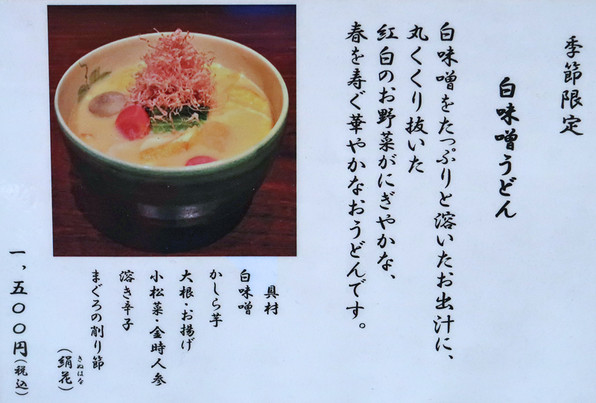 季節限定
白味噌うどん
白味噌をたっぷりと溶いたお出汁に、
丸くくり抜いた
紅白のお野菜がにぎやかな、
春を寿ぐ華やかなおうどんです。
具材
白味噌
かしら芋
大根・お揚げ
小松菜・金時人参
溶き辛子
まぐろの削り節
(絹花)
きぬはな
一、五〇〇円(税込)